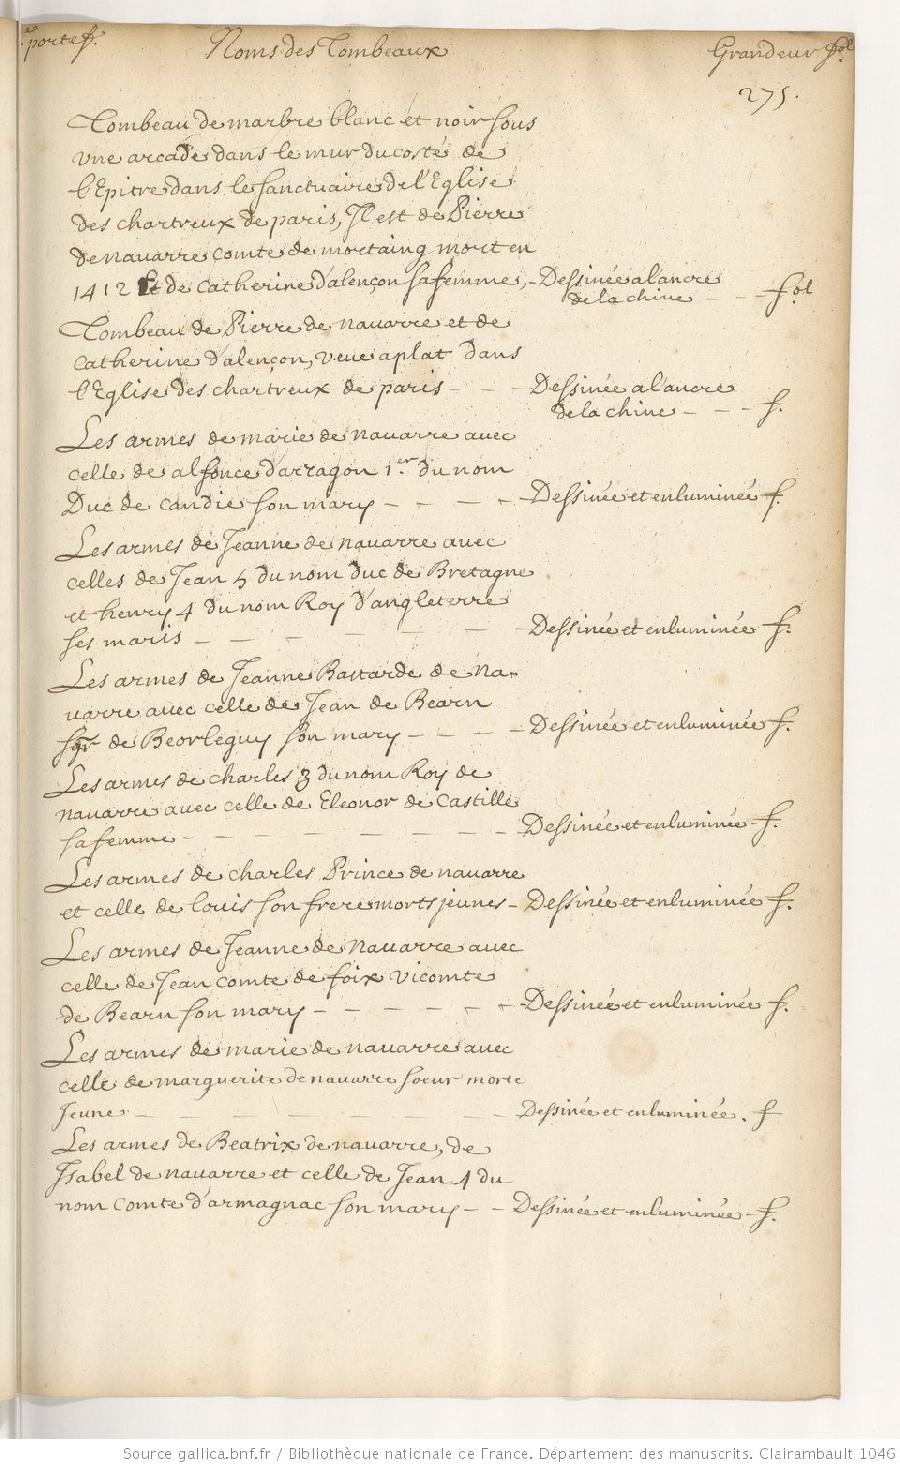 portef. Noms des Tombeaux Grandeur fol.
275.
Tombeau de marbre blanc et noir sous
vne arcade dans le mur du costé de
l'Epitre dans le sanctuaire de l'Eglise
des chartreux de paris, Il est de Pierre
de nauarre comte de mortaing mort en
1412 Et de Catherine d'alençon sa femme, - Dessinée a lancre
de la chine - - - fol
Tombeau de Pierre de nauarre et de
Catherine d'alençon, veue a plat dans
l'Eglise des chartreux de paris - - - Dessinée a lancre
de la chine - - - f.
Les armes de marie de nauarre auec
celle de alfonce d'arragon 1.er du nom
Duc de candie son mary - - - - Dessinée et enluminée f.
Les armes de Jeanne de nauarre auec
celles de Jean 5 du nom duc de Bretagne
et henry 4 du nom Roy d'angleterre
ses maris - - - - - - - Dessinée et enluminée f.
Les armes de Jeanne Bastarde de Na-
uarre auec celle de Jean de Bearn
sgr de Beorleguy son mary - - - - Dessinée et enluminée f.
Les armes de charles 3 du nom Roy de
nauarre auec celle de Eleonor de Castille
sa femme - - - - - - - - Dessinée et enluminée - f.
Les armes de charles Prince de nauarre
et celle de louis son frere morts jeunes - Dessinée et enluminée f.
Les armes de Jeanne de Nauarre auec
celle de Jean comte de foix vicomte
de Bearn son mary - - - - - - Dessinée et enluminée f.
Les armes de marie de nauarre auec
celle de marguerite de nauarre soeur morte
Jeune - - - - - - - - Dessinée et enluminée. f
Les armes de Beatrix de nauarre, de
Isabel de nauarre et celle de Jean 4 du
nom Comte d'armagnac son mary - - Dessinée et enluminée - f.
Source gallica.bnf.fr / Bibliothèque nationale de France. Département des manuscrits. Clairambault 1046